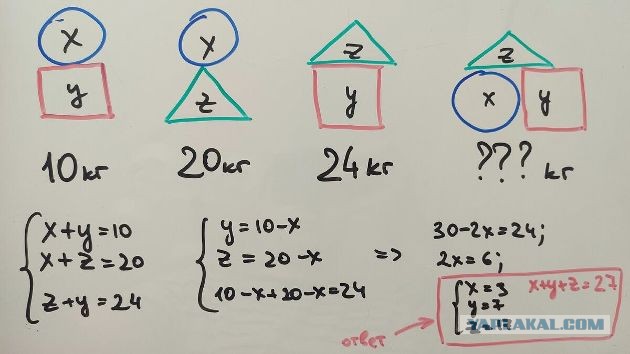 x x z z
y z y x y
10кг 20кг 24кг ??? кг
x+y=10
x+z=20
z+y=24
y=10-x
z=20-x
10-x+20-x=24
=>
30-2x=24;
2x=6;
x=3
y=7
x+y+z=27
ответ
YAPLAKAL.COM